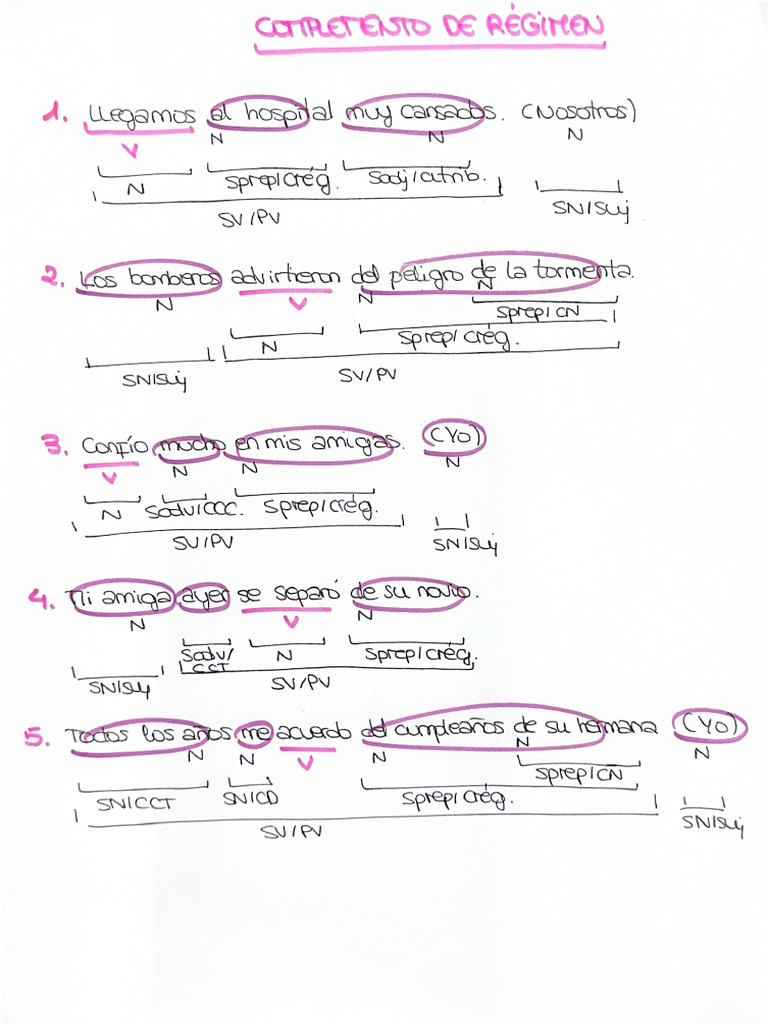 COMPLEMENTO DE RÉGIMEN
1. Llegamos al hospital muy cansados. (Nosotros)
V N N N
N Sprep/Crég. Sadj/C.atrib.
SV/PV SN/Suj
2. Los bomberos advirtieron del peligro de la tormenta.
N V N N
Sprep/CN
N Sprep/Crég.
SN/Suj SV/PV
3. Confío mucho en mis amigas. (Yo)
V N N N
N Sadv/CCC. Sprep/Crég.
SV/PV SN/Suj
4. Mi amiga ayer se separó de su novio.
N V N
Sadv/ N Sprep/Crég.
CCT
SN/Suj SV/PV
5. Todos los años me acuerdo del cumpleaños de su hermana (Yo)
N N V N N N
Sprep/CN
SN/CCT SN/CD Sprep/Crég.
SN/Suj
SV/PV